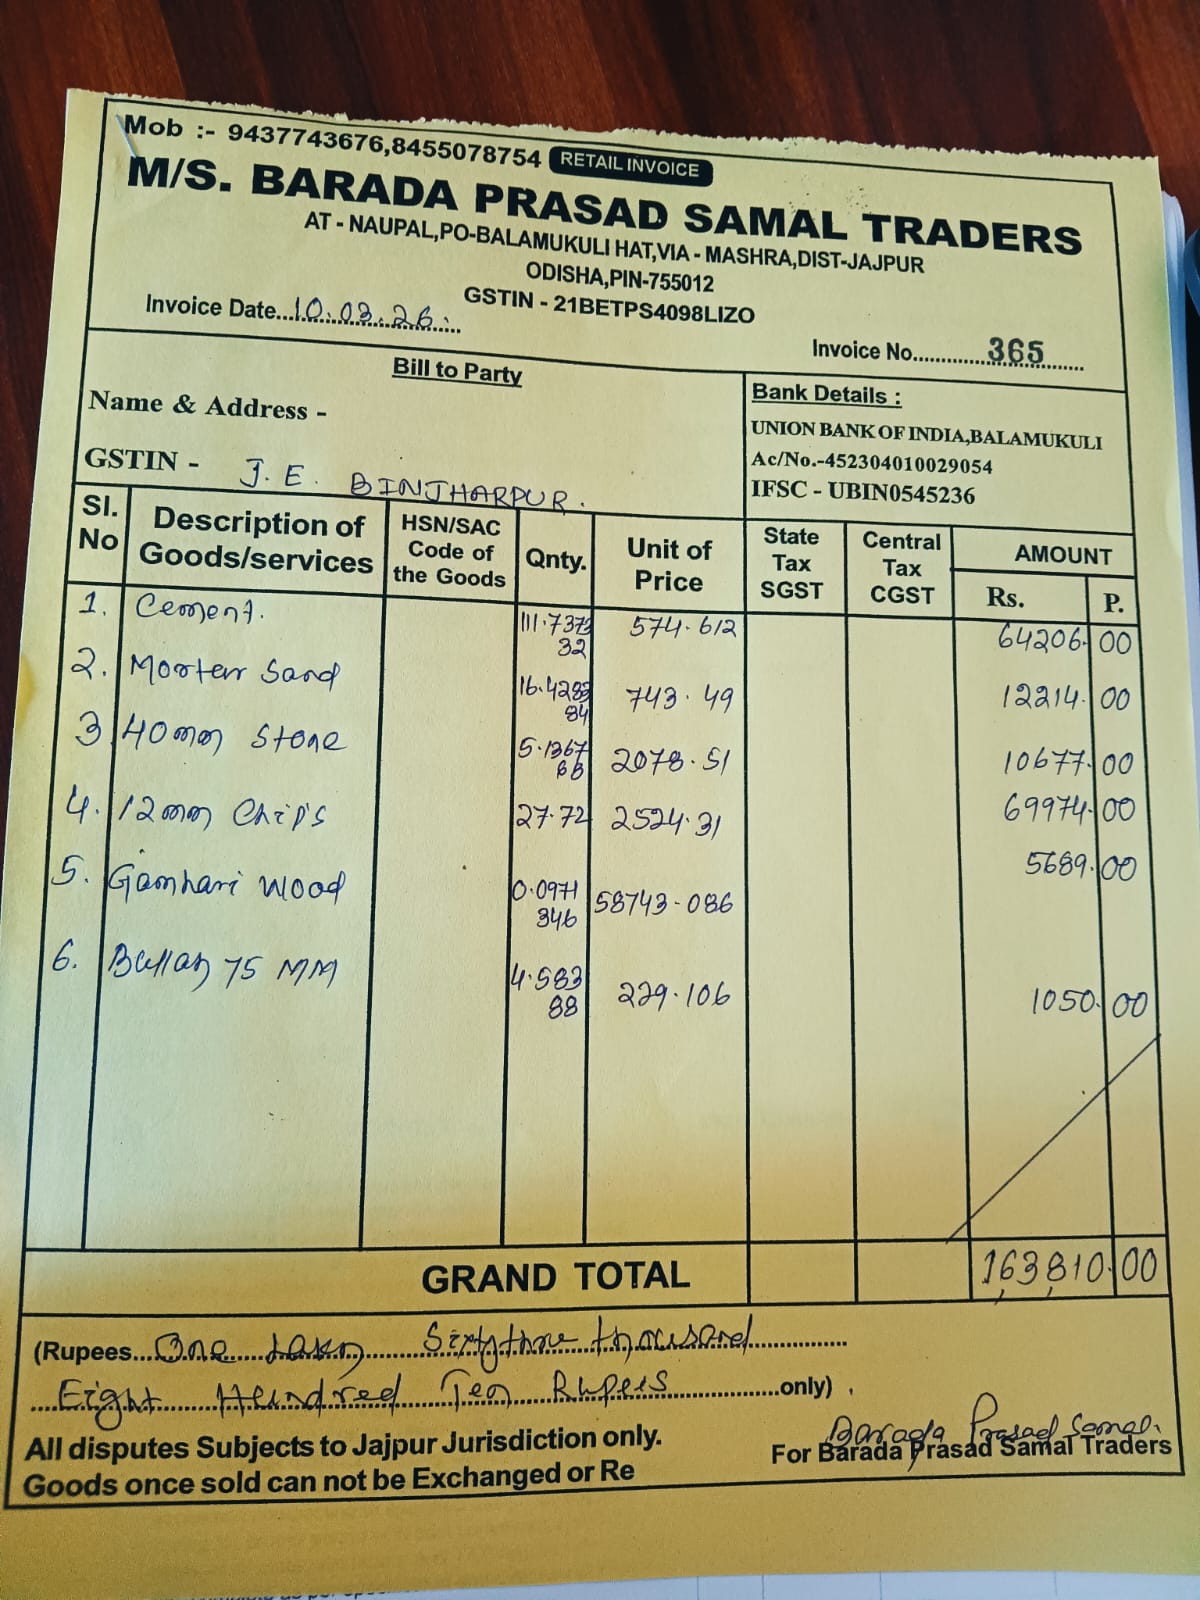 Mob :- 9437743676,8455078754 RETAIL INVOICE
M/S. BARADA PRASAD SAMAL TRADERS
AT - NAUPAL,PO-BALAMUKULI HAT,VIA - MASHRA,DIST-JAJPUR
ODISHA,PIN-755012
GSTIN - 21BETPS4098LIZO
Invoice Date...10.03.26.
Invoice No............365......
Bill to Party
Name & Address -
GSTIN - J.E. BINJHARPUR.
Bank Details :
UNION BANK OF INDIA,BALAMUKULI
Ac/No.-452304010029054
IFSC - UBIN0545236
Sl. No Description of Goods/services HSN/SAC Code of the Goods Qnty. Unit of Price State Tax SGST Central Tax CGST AMOUNT Rs. P.
1. Cement. 111.7373 32 574.612 64206.00
2. Morter Sand 16.4283 84 743.49 12214.00
3 40mm Stone 5.1367 68 2078.51 10677.00
4. 12mm Chip's 27.72 2524.31 69974.00
5. Gamhari Wood 0.0971 346 58743.086 5689.00
6. 75 MM 4.583 88 229.106 1050.00
GRAND TOTAL 163810.00
(Rupees...One Lakh Sixtythree thousand
Eight Hundred Ten Rupees only)
All disputes Subjects to Jajpur Jurisdiction only.
Goods once sold can not be Exchanged or Re
Barada Prasad Samal.
For Barada Prasad Samal Traders